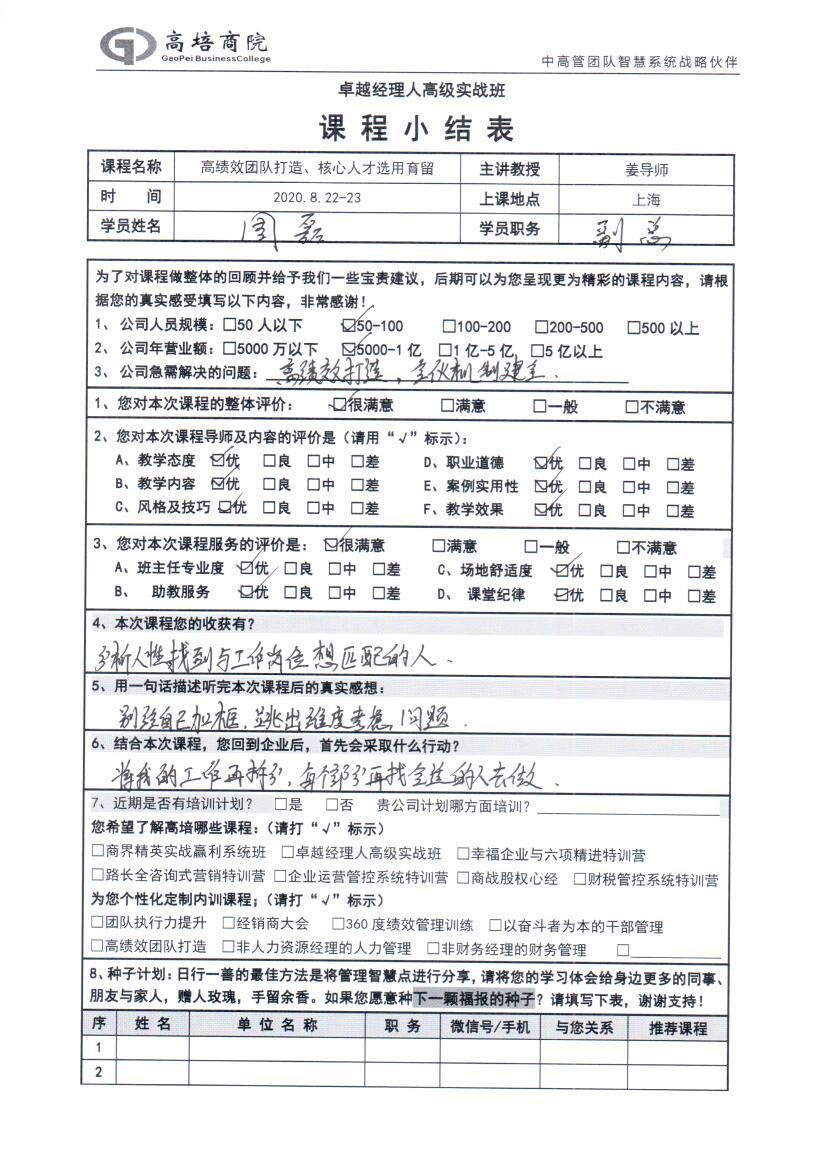 高培商院
GaoPei BusinessCollege
中高管团队智慧系统战略伙伴
卓越经理人高级实战班
课程小结表
课程名称 高绩效团队打造、核心人才选用育留 主讲教授 姜导师
时 间 2020.8.22-23 上课地点 上海
学员姓名 周磊 学员职务 副总
为了对课程做整体的回顾并给予我们一些宝贵建议，后期可以为您呈现更为精彩的课程内容，请根
据您的真实感受填写以下内容，非常感谢！
1、公司人员规模：□50人以下 ☑50-100 □100-200 □200-500 □500以上
2、公司年营业额：□5000万以下 ☑5000-1亿 □1亿-5亿 □5亿以上
3、公司急需解决的问题：高绩效打造，合伙机制建立.
1、您对本次课程的整体评价： ☑很满意 □满意 □一般 □不满意
2、您对本次课程导师及内容的评价是（请用“√”标示）：
A、教学态度 ☑优 □良 □中 □差 D、职业道德 ☑优 □良 □中 □差
B、教学内容 ☑优 □良 □中 □差 E、案例实用性 ☑优 □良 □中 □差
C、风格及技巧 ☑优 □良 □中 □差 F、教学效果 ☑优 □良 □中 □差
3、您对本次课程服务的评价是： ☑很满意 □满意 □一般 □不满意
A、班主任专业度 ☑优 □良 □中 □差 C、场地舒适度 ☑优 □良 □中 □差
B、 助教服务 ☑优 □良 □中 □差 D、 课堂纪律 ☑优 □良 □中 □差
4、本次课程您的收获有？
分析人性找到与工作岗位想匹配的人.
5、用一句话描述听完本次课程后的真实感想：
别给自己加框，跳出维度考虑问题.
6、结合本次课程，您回到企业后，首先会采取什么行动？
将我的工作再拆分，每个部分再找合适的人去做.
7、近期是否有培训计划？ □是 □否 贵公司计划哪方面培训？
您希望了解高培哪些课程：（请打“√”标示）
□商界精英实战赢利系统班 □卓越经理人高级实战班 □幸福企业与六项精进特训营
□路长全咨询式营销特训营 □企业运营管控系统特训营 □商战股权心经 □财税管控系统特训营
为您个性化定制内训课程；（请打“√”标示）
□团队执行力提升 □经销商大会 □360度绩效管理训练 □以奋斗者为本的干部管理
□高绩效团队打造 □非人力资源经理的人力管理 □非财务经理的财务管理 □
8、种子计划：日行一善的最佳方法是将管理智慧点进行分享，请将您的学习体会给身边更多的同事、
朋友与家人，赠人玫瑰，手留余香。如果您愿意种下一颗福报的种子？请填写下表，谢谢支持！
序 姓名 单位名称 职务 微信号/手机 与您关系 推荐课程
1
2